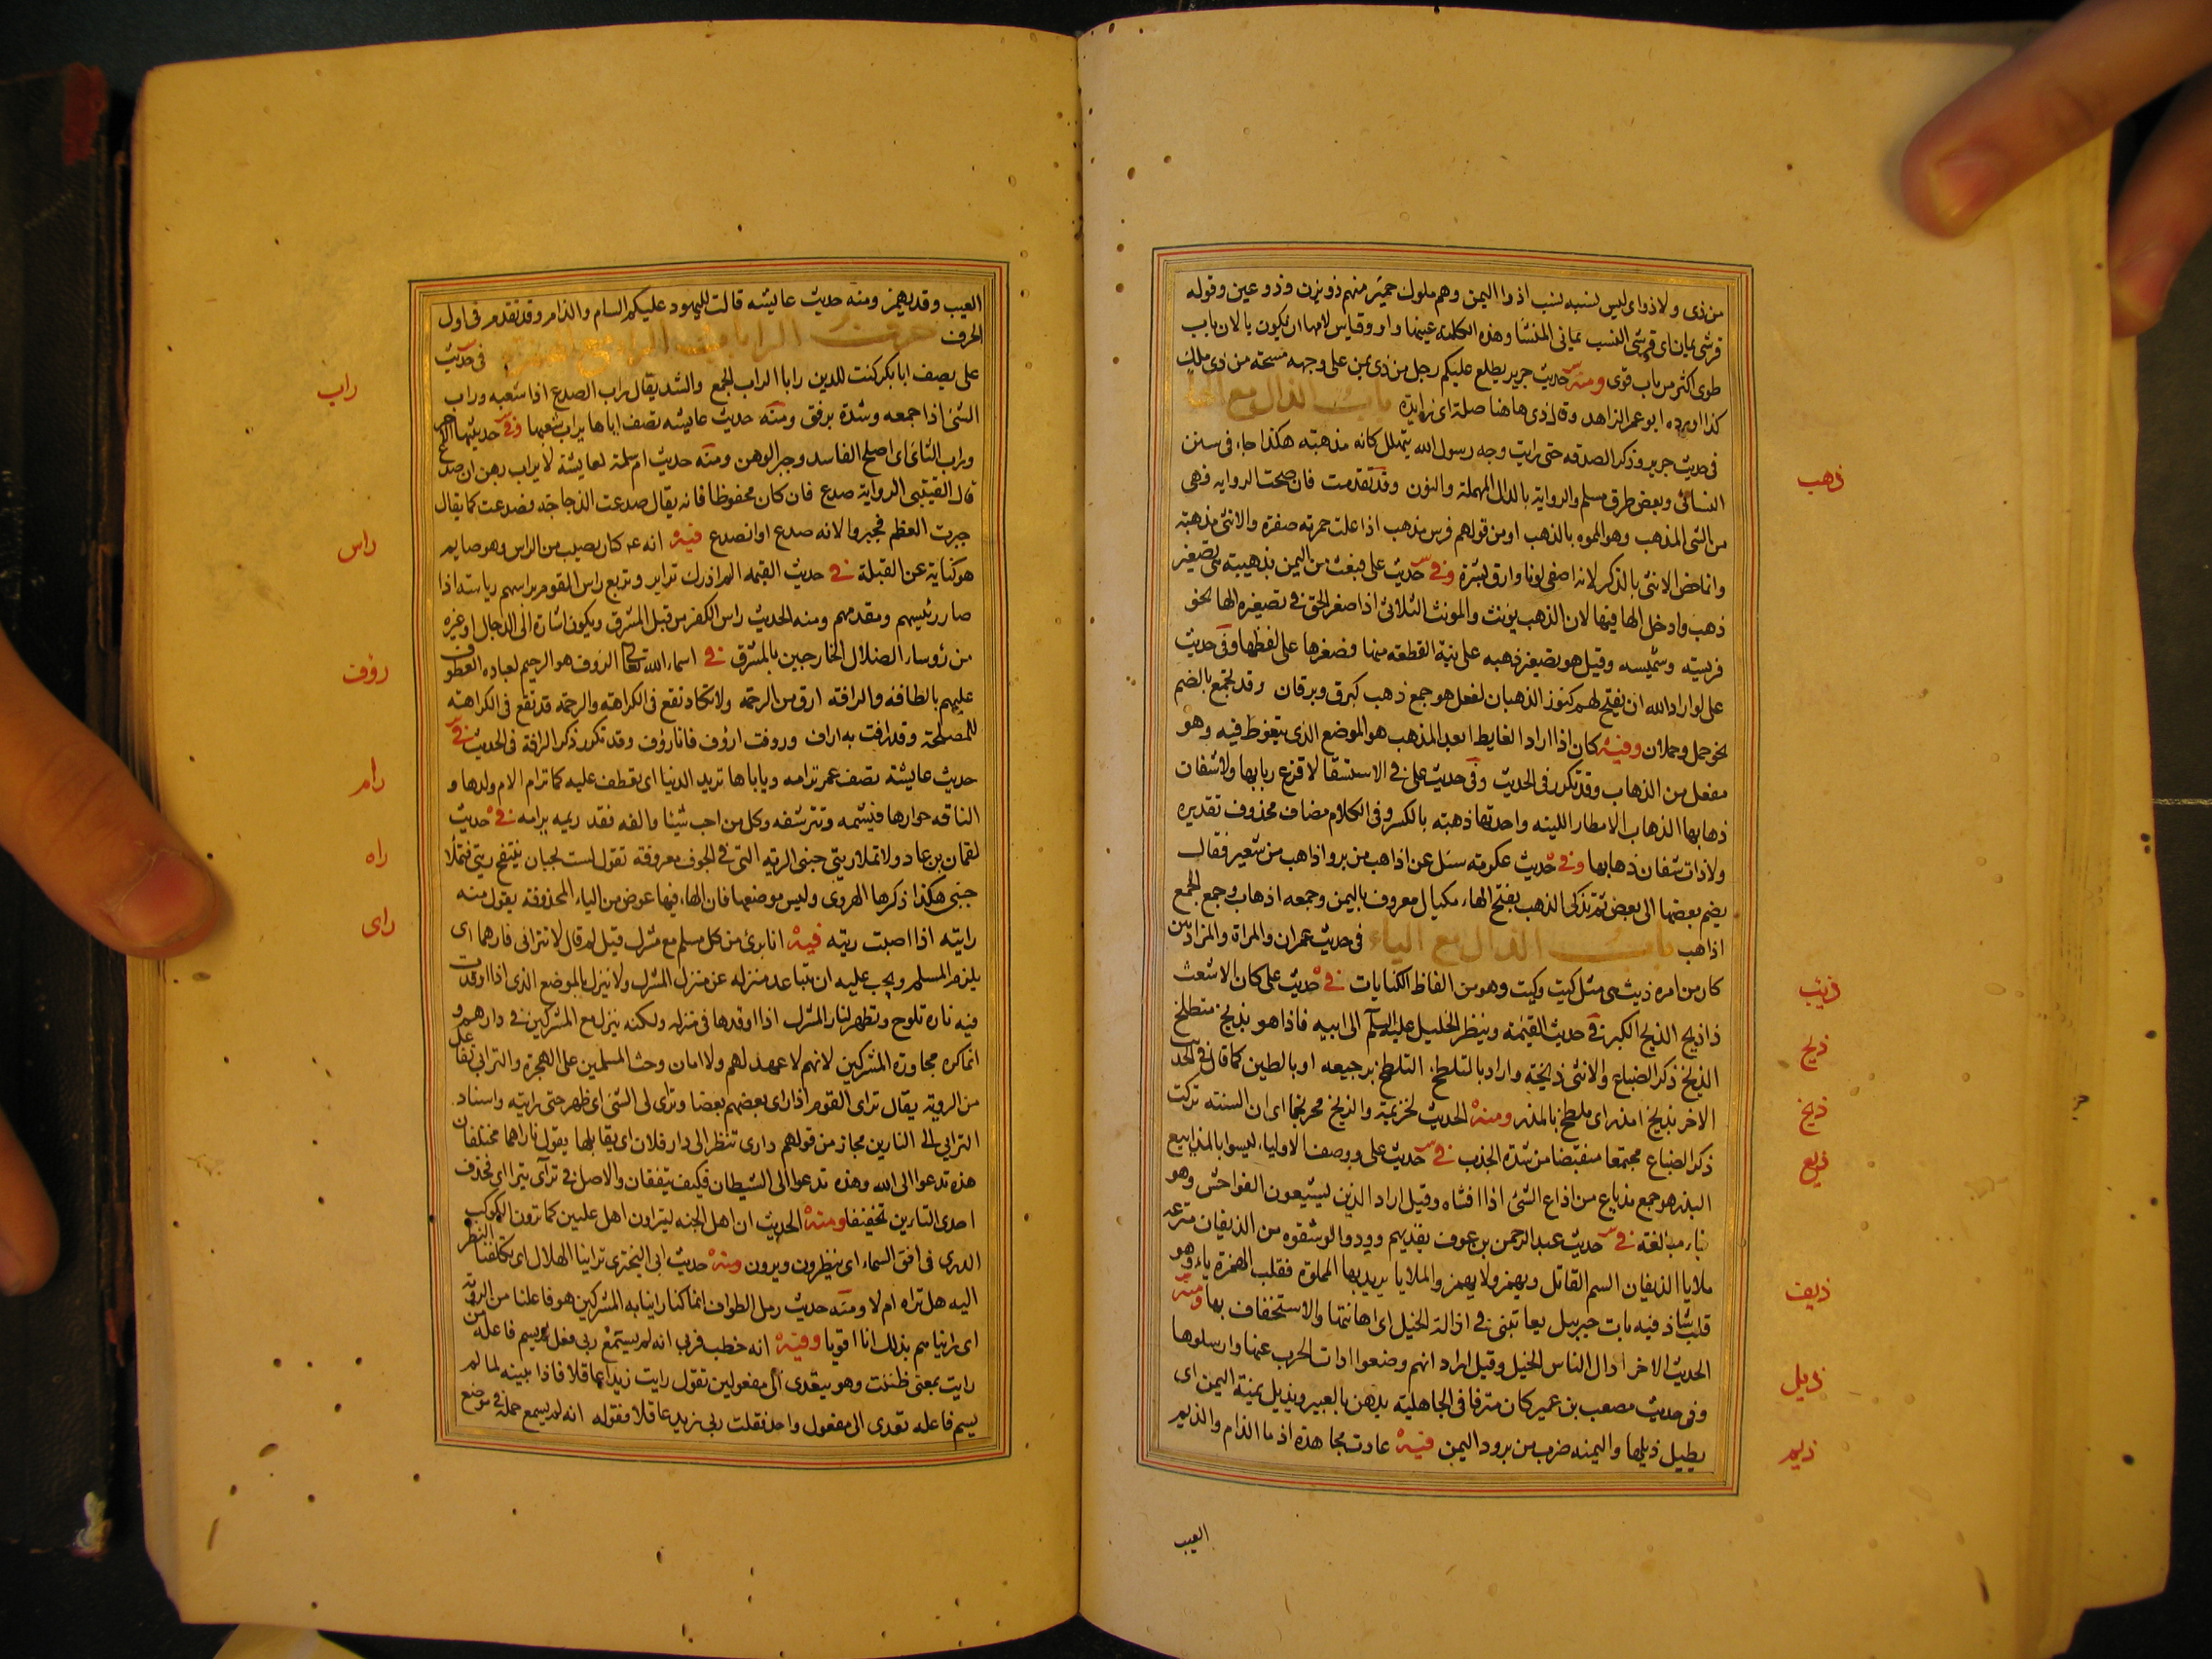 من ذی ولا ذوای لیس نسبه نسب اذوا الیمن وهم ملوك حمیر منهم ذو یزن وذو عین وقوله
قرشی یمان ای قرشی النسب یمانی المنشا وهذه الکلمه عینها واو وقیاس لامها ان یکون یا لان باب
طوی اکثر من باب قوی ومنه حدیث جریر یطلع علیکم رجل من ذی یمن علی وجهه مسحة من ذی ملك
کذا اورده ابو عمر الزاهد وقال ذی هاهنا صلة ای زایدة باب الذال مع الها
ذهب
فی حدیث جریر وذکر الصدقه حتی رایت وجه رسول الله یتهلل کانه مذهبته هکذا جاء فی سنن
النسائی وبعض طرق مسلم والروایة بالدال المهملة والنون وقد تقدمت فان صحت الروایه فهی
من الشی المذهب وهو المموه بالذهب او من قولهم فرس مذهب اذا علت حمرته صفرة والانثی مذهبته
وانما خص الانثی بالذکر لانها اصفی لونا وارق بشرة وفی حدیث علی فبعث من الیمن بذهیبة هی تصغیر
ذهب وادخل الها فیها لان الذهب یونث والمونث الثلاثی اذا صغر الحق فی تصغیره الها نحو
قریسته وشمیسه وقیل هو تصغیر ذهبه علی نیة القطعه منها فصغرها علی لفظها وفی حدیث
علی لو اراد الله ان یفتح لهم کنوز الذهبان لفعل هو جمع ذهب کبرق وبرقان وقد یجمع بالضم
نحو حمل وحملان وفیه کان اذا اراد الغایط ابعد المذهب هو الموضع الذی یتغوط فیه وهو
مفعل من الذهاب وقد تکرر فی الحدیث وفی حدیث علی فی الاستسقا لا قزع ربابها ولا شفان
ذهابها الذهاب الامطار اللینه واحدتها ذهبته بالکسر وفی الکلام مضاف محذوف تقدیره
ولا ذات شفان ذهابها وفی حدیث عکرمه سئل عن اذاهب من بر واذاهب من شعیر فقال
یضم بعضها الی بعض ثم تزکی الذهب بفتح الهاء مکیال معروف بالیمن وجمعه اذهاب وجمع الجمع
اذاهب باب الذال مع الیاء فی حدیث عمران والمراة والمزادتین
ذیت
کان من امره ذیت هی مثل کیت وکیت وهو من الفاظ الکنایات فی حدیث علی کان الاشعث
ذیح
ذا ذیح الذیح الکبر فی حدیث القیمه وینظر الخلیل علیه السلم الی ابیه فاذا هو بذیخ متطلخ
ذیخ
الذیخ ذکر الضباع والانثی ذیخته واراد بالتلطخ التلطخ برجیعه او بالطین کما قال فی الحدیث
الاخر بذیخ امدر ای ملطخ بالمدر ومنه الحدیث لخزیمة والذیخ محرنجما ای ان السنته ترکت
ذیع
ذکر الضباع مجتمعا منقبضا من شدة الجدب فی حدیث علی ووصف الاولیا لیسوا بالمذاییع
البذر هو جمع مذیاع من اذاع الشئ اذا افشاه وقیل اراد الذین یشیعون الفواحش وهو
ذیف
بناء مبالغه فی حدیث عبد الرحمن بن عوف یفدیهم وودوا لو سقوه من الذیفان مترعه
ملایا الذیفان السم القاتل ویهمز ولا یهمز والملایا یرید بها المملوة فقلب الهمزة یاء وهو
قلب شاذ فیه بات جبریل یعاتبنی فی اذالة الخیل ای اهانتها والاستخفاف بها ومنه
ذیل
الحدیث الاخر اذال الناس الخیل وقیل اراد انهم وضعوا ادات الحرب عنها وارسلوها
وفی حدیث مصعب بن عمیر کان مترفا فی الجاهلیه یدهن بالعبیر ویذیل یمنة الیمن ای
ذیم
یطیل ذیلها والیمنه ضرب من برود الیمن فیه عادت محامده ذما الذام والذیم
العیب
العیب وقد یهمز ومنه حدیث عایشه قالت للیهود علیکم السام والذام وقد تقدم فی اول
الحرف حرف الرا باب الرا مع الهمزة فی حدیث
راب
علی یصف ابا بکر کنت للدین رابا الراب الجمع والشد یقال راب الصدع اذا شعبه وراب
الشئ اذا جمعه وشده برفق ومنه حدیث عایشه تصف اباها یراب شعبها وفی حدیثها الاخر
وراب الثای ای اصلح الفاسد وجبر الوهن ومنه حدیث ام سلمة لعایشة لا یراب بهن ان صدع
قال القتیبی الروایة صدع فان کان محفوظا فانه یقال صدعت الزجاجه فصدعت کما یقال
راس
جبرت العظم فجبر والا فانه صدع او انصدع فیه انه ع کان یصیب من الراس وهو صایم
هو کنایة عن القبلة فی حدیث القیمه الم اذرك تراس وتربع راس القوم یراسهم ریاسته اذا
صار رئیسهم ومقدمهم ومنه الحدیث راس الکفر من قبل المشرق ویکون اشارة الی الدجال او غیره
رؤف
من رؤساء الضلال الخارجین بالمشرق فی اسماء الله تعالی الرؤف هو الرحیم لعباده العطوف
علیهم بالطافه والرافته ارق من الرحمة ولا تکاد تقع فی الکراهته والرحمة قد تقع فی الکراهته
للمصلحة وقد رافت به اراف ورؤفت ارؤف فانا رؤف وقد تکرر ذکر الرافة فی الحدیث فی
رام
حدیث عایشة تصف عمر ترامه ویاباها ترید الدنیا ای تعطف علیه کما ترام الام ولدها و
الناقه حوارها فتشمه وتترشفه وکل من احب شیئا والفه فقد ریمه یرامه فی حدیث
راه
لقمان بن عاد ولا تملا ریتی جنبی الریه التی فی الجوف معروفة تقول لست بجبان ینتفخ ریتی فتملا
جنبی هکذا ذکرها الهروی ولیس موضعها فان الهاء فیها عوض من الیاء المحذوفة یقول منه
رای
رایته اذا اصبت ریته فیه انا برئ من کل مسلم مع مشرك قیل لم قال لا تترائی نارهما ای
یلزم المسلم ویجب علیه ان یتباعد منزله عن منزل المشرك ولا ینزل بالموضع الذی اذا اوقدت
فیه ناره تلوح وتظهر لنار المشرك اذا اوقدها فی منزله ولکنه ینزل مع المسلمین فی دارهم و
انما کره مجاورة المشرکین لانهم لا عهد لهم ولا امان وحث المسلمین علی الهجرة والترایی تفاعل
من الرویة یقال ترای القوم اذا رای بعضهم بعضا وترای لی الشئ ای ظهر حتی رایته واسناد
الترایی الی النارین مجاز من قولهم داری تنظر الی دار فلان ای یقابلها یقول ناراهما مختلفان
هذه تدعوا الی الله وهذه تدعوا الی الشیطان فکیف یتفقان والاصل فی ترآی تترای فحذف
احدی التایین تخفیفا ومنه الحدیث ان اهل الجنه لیتراون اهل علیین کما ترون الکوکب
الدری فی افق السماء ای ینظرون ویرون ومنه حدیث ابی البختری تراینا الهلال ای تکلفنا النظر
الیه هل تراه ام لا ومنه حدیث رمل الطواف انما کنا راینا به المشرکین هو فاعلنا من الرویة
ای اریناهم بذلك انا اقویا وفیه انه خطب فرئی انه لم یسمع رئی فعل لم یسم فاعله من
رایت بمعنی ظننت وهو یتعدی الی مفعولین تقول رایت زیدا عاقلا فاذا بنیته لما لم
یسم فاعله تعدی الی مفعول واحد فقلت رئی زید عاقلا فقوله انه لم یسمع جملة فی موضع